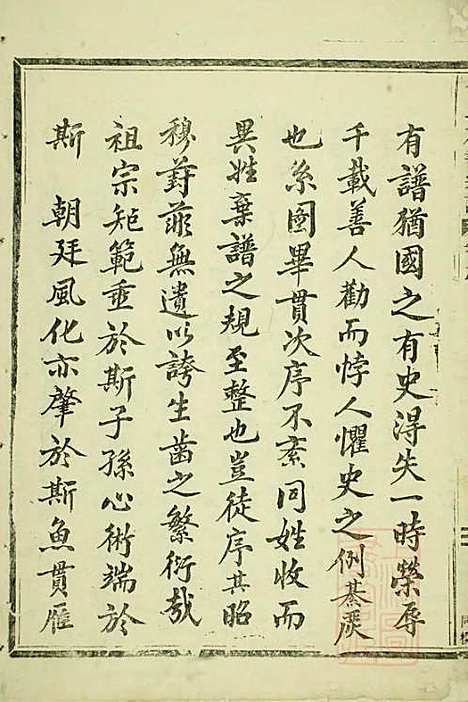 有譜猶國之有史得失一時榮辱
千載善人勸而悖人懼史之例綦嚴
也系圖畢貫次序不紊同姓收而
異姓棄譜之規至整也豈徒序其昭
穆葑菲無遺以誇生齒之繁衍哉
祖宗矩範垂於斯子孫心術端於
斯 朝廷風化亦肇於斯魚貫雁